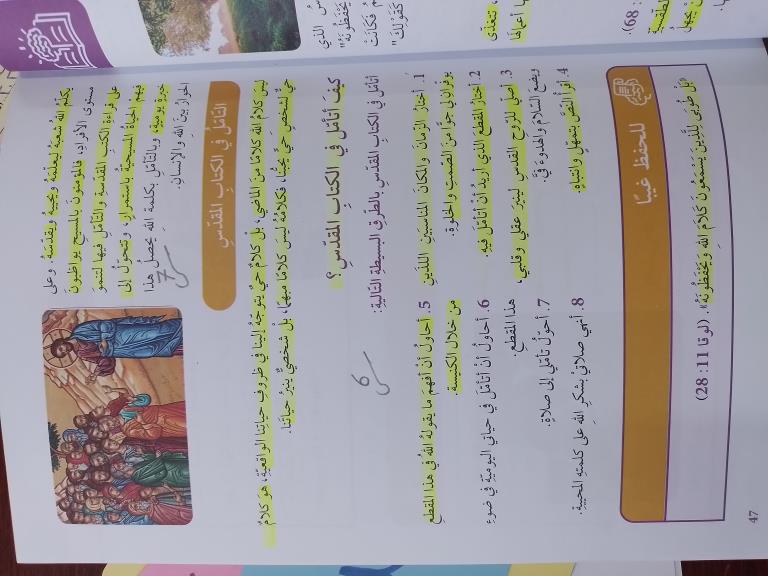 يكلّمُ اللهُ شعبَهُ ليعلّمَهُ ويحبَّهُ ويقدّسَهُ. وعلى
مستوى الأفرادِ، فالمؤمنونَ بالمسيحِ يواظبونَ
على قراءةِ الكتبِ المقدّسةِ والتأمّلِ فيها لتنموَ
فيهم الحياةُ المسيحيّةُ باستمرارٍ، وتتحوّلَ إلى
خبرةٍ يوميّةٍ، وبالتأمّلِ بكلمةِ اللهِ يحصلُ هذا
الحوارُ بينَ اللهِ والإنسانِ.
س7
التأمّلُ في الكتابِ المقدّسِ
ليسَ كلامُ اللهِ كلامًا من الماضي، بلْ كلامٌ حيٌّ يتوجّهُ إلينا في ظروفِ حياتِنا الواقعيّةِ، هوَ كلامُ
حيٍّ لشخصٍ حيٍّ يحبُّنا، فكلامُهُ ليسَ كلامًا مبهمًا، بلْ شخصيٌّ ينيرُ حياتَنا.
كيفَ أتأمّلُ في الكتابِ المقدّسِ؟
س6
أتأمّلُ في الكتابِ المقدّسِ بالطّرقِ البسيطةِ التّاليةِ:
1. أختارُ الزّمانَ والمكانَ المناسبَينِ اللّذَينِ
يوفّرانِ لي جوًّا منَ الصّمتِ والخلوةِ.
2. أختارُ المقطعَ الّذي أريدُ أنْ أتأمّلَ فيهِ.
3. أصلّي للرّوحِ القدسِ لينيرَ عقلي وقلبي،
ويضعَ السّلامَ والهدوءَ فيَّ.
4. أقرأُ النّصَّ بتمهّلٍ وانتباهٍ.
5. أحاولُ أنْ أفهمَ ما يقولُهُ اللهُ في هذا المقطعِ
من خلالِ الكنيسةِ.
6. أحاولُ أنْ أتأمّلَ في حياتي اليوميّةِ في ضوءِ
هذا المقطعِ.
7. أحوّلُ تأمّلي إلى صلاةٍ.
8. أنهي صلاتي بشكرِ اللهِ على كلمتِهِ المحييةِ.
للحفظِ غيبًا
"بل طوبى للّذينَ يسمعونَ كلامَ اللهِ ويحفظونَهُ". (لوقا 11: 28)
47
س الّذي
يحفظونَهُ"
كقولِكَ"
68).